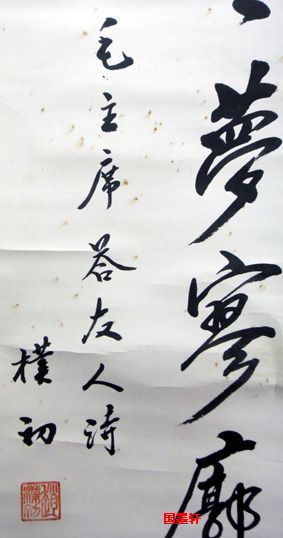 夢寥廓
毛主席答友人詩
樸初
国墨轩